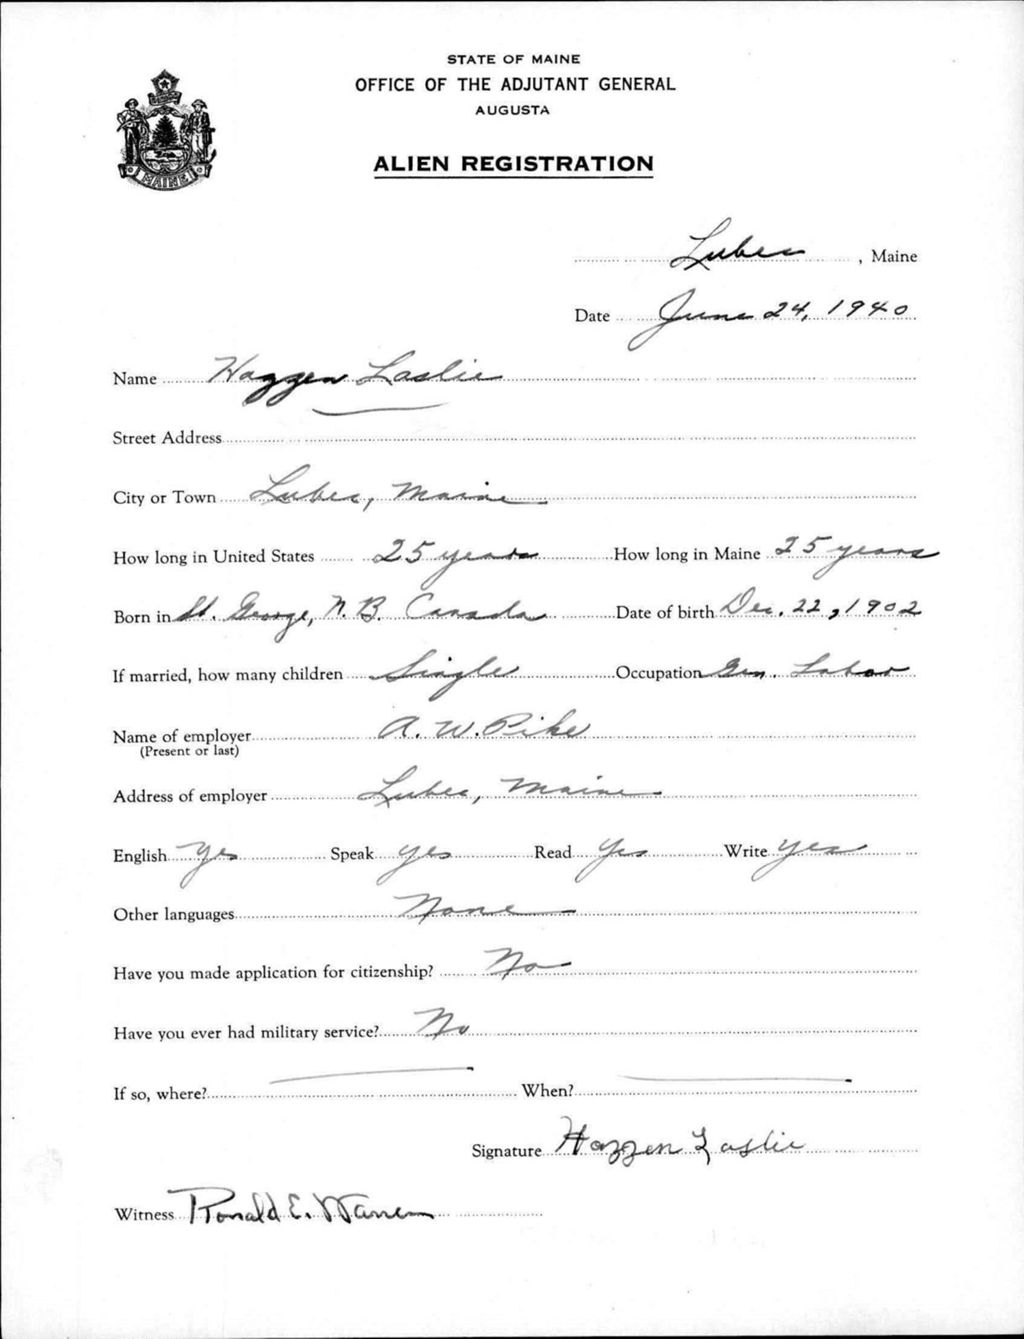 STATE OF MAINE
OFFICE OF THE ADJUTANT GENERAL
AUGUSTA
ALIEN REGISTRATION
MAINE
Lubec, Maine
Date June 24, 1940
Name Hazzen Laslie
Street Address
City or Town Lubec, Maine
How long in United States 25 years How long in Maine 25 years
Born in St. George, N.B. Canada Date of birth Dec. 22, 1902
If married, how many children Single Occupation Gen. Labor
Name of employer A. W. Pike
(Present or last)
Address of employer Lubec, Maine
English Yes Speak yes Read Yes Write yes
Other languages None
Have you made application for citizenship? No
Have you ever had military service? No
If so, where? When?
Signature Hazzen Laslie
Witness Ronald E. Warren